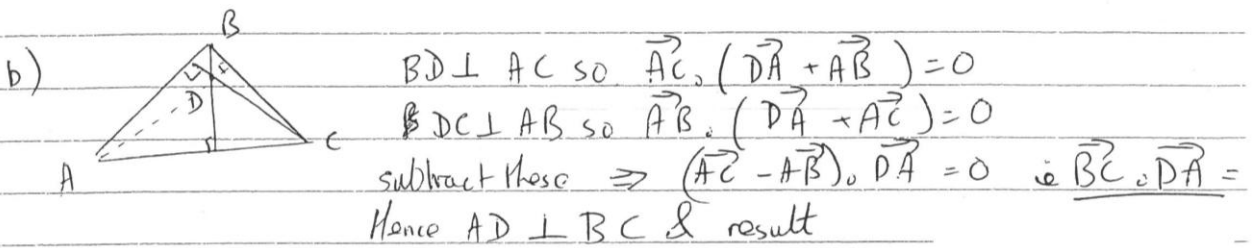 b)
B
D
A
C
BD ⊥ AC so $\overrightarrow{AC} . (\overrightarrow{DA} + \overrightarrow{AB}) = 0$
DC ⊥ AB so $\overrightarrow{AB} . (\overrightarrow{DA} + \overrightarrow{AC}) = 0$
subtract these ⇒ $(\overrightarrow{AC} - \overrightarrow{AB}) . \overrightarrow{DA} = 0$ ie $\overrightarrow{BC} . \overrightarrow{DA} =$
Hence AD ⊥ BC & result